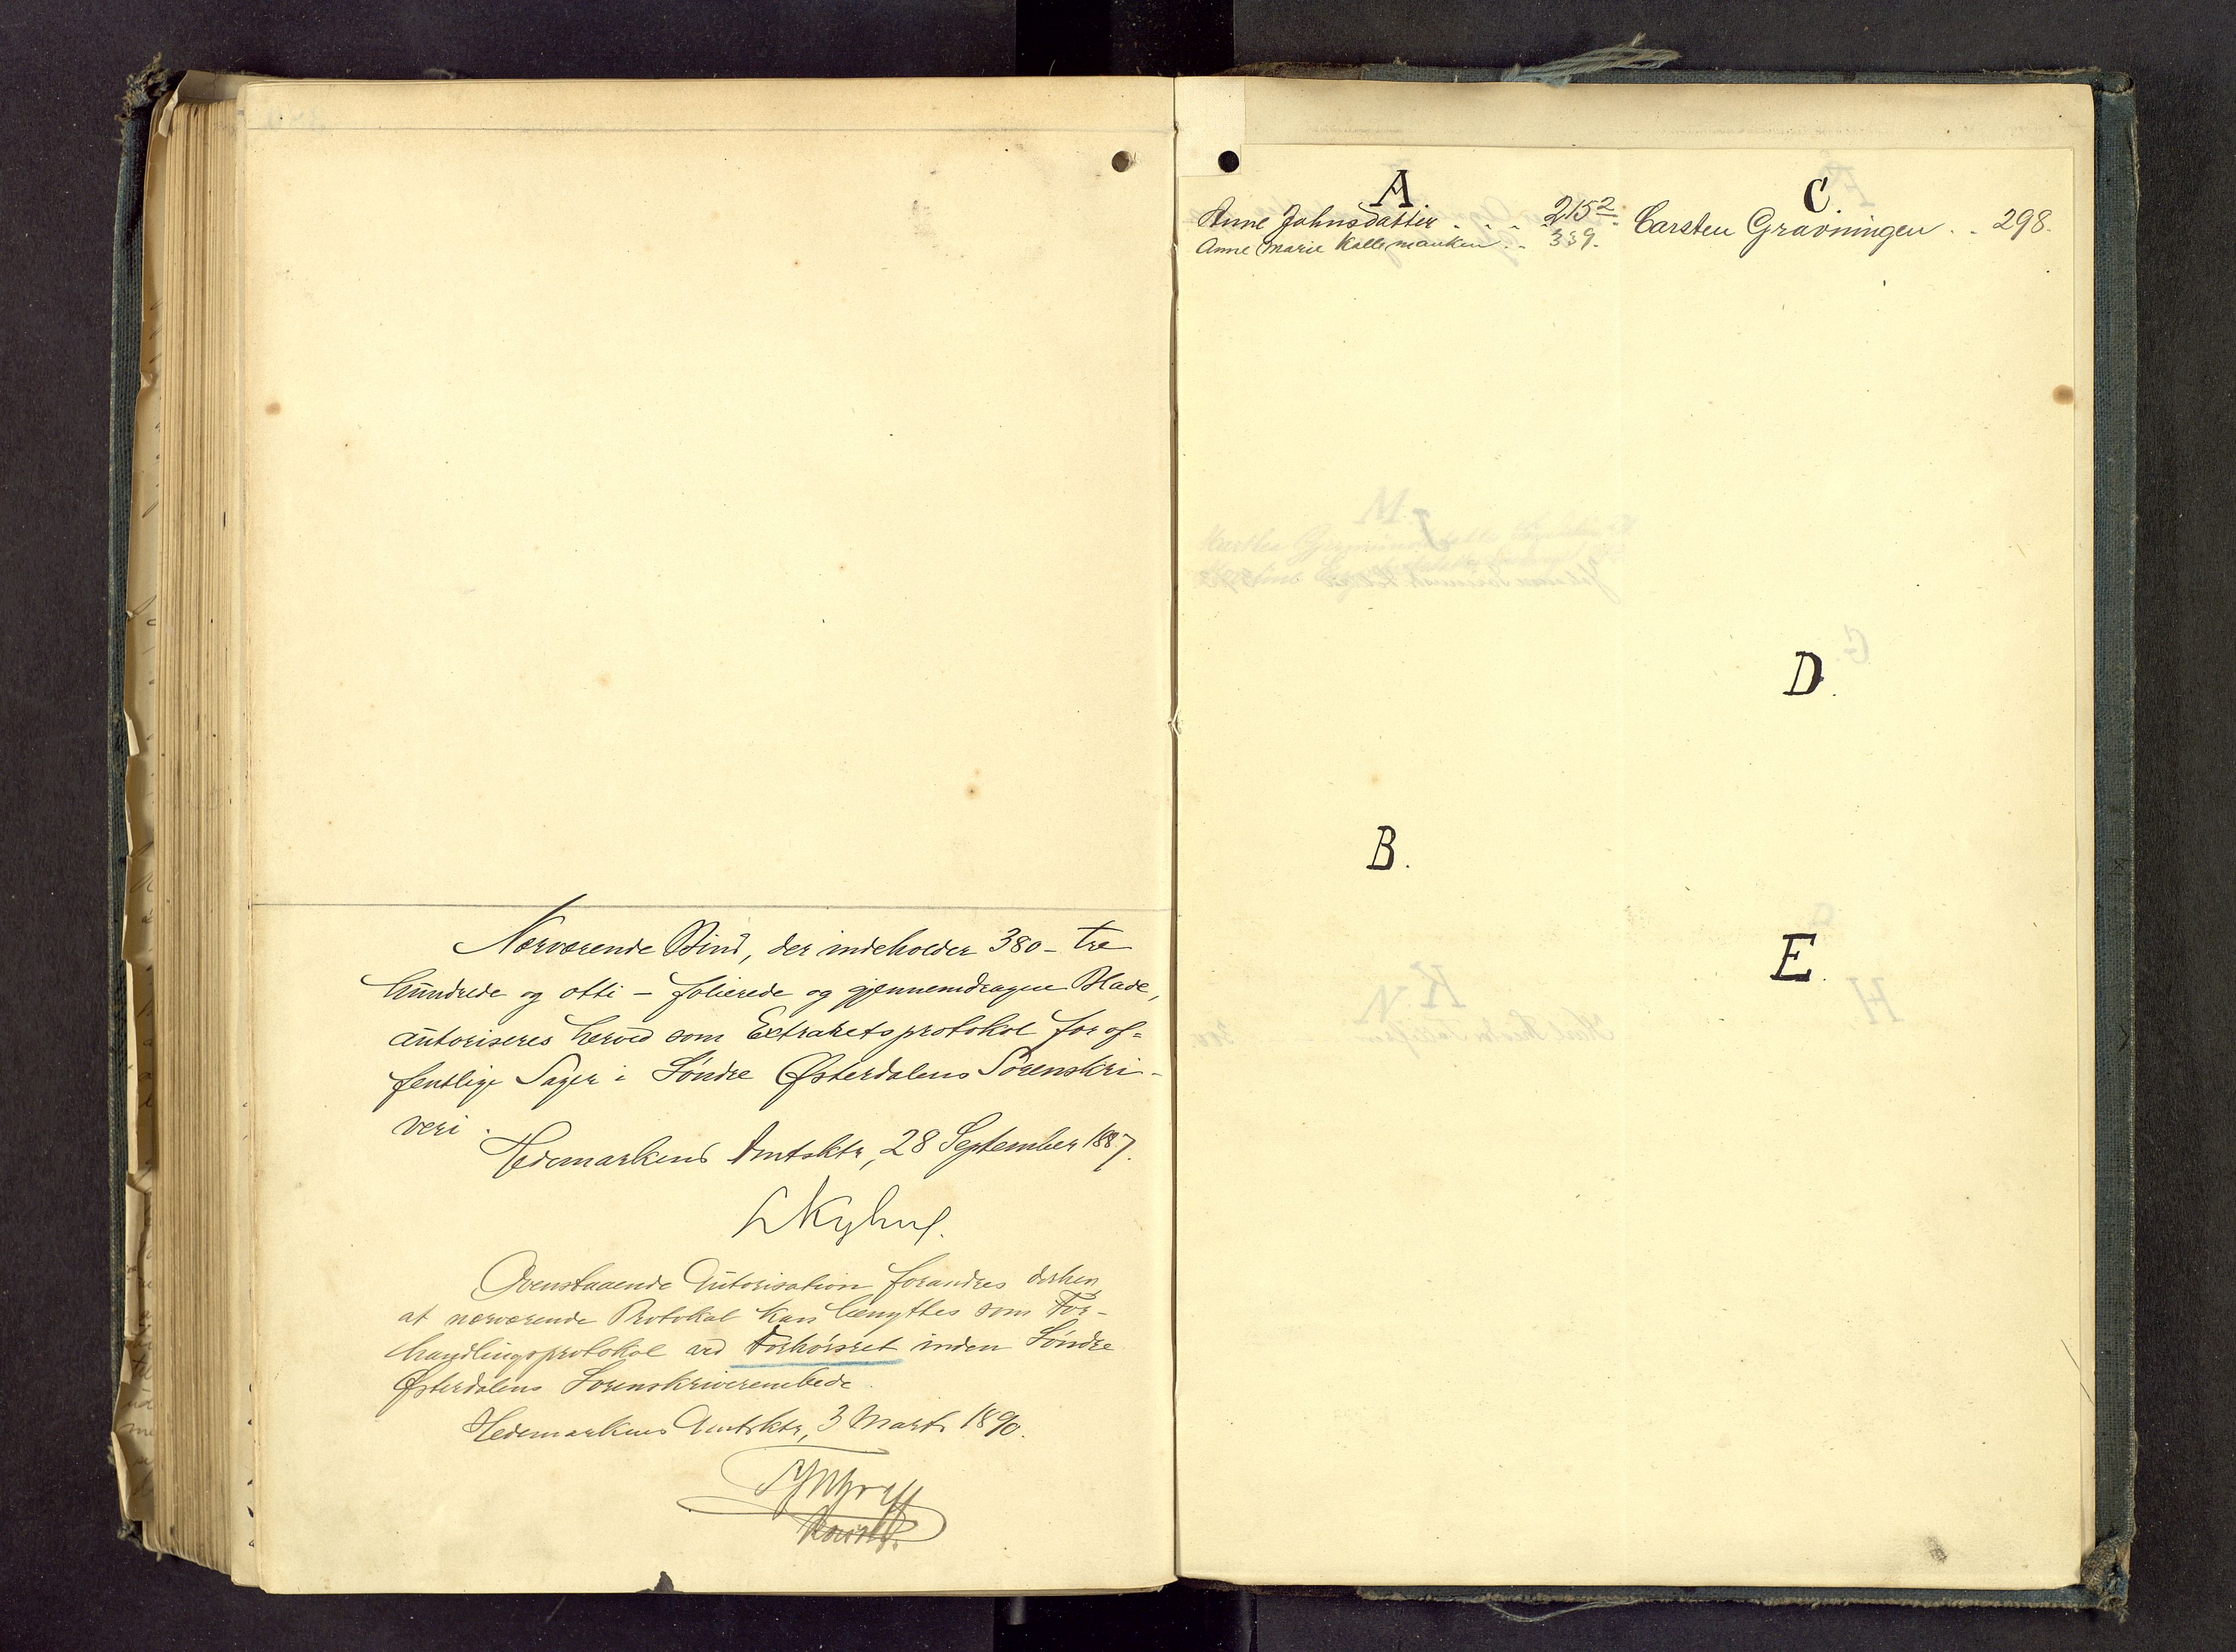 Nærværende Bind, der indeholder 380 - tre
hundrede og otti - folierede og gjennemdragne Blade,
autoriseres herved som Extraretsprotokol for of-
fentlige Sager i Søndre Østerdalens Sorenskri-
veri.
Hedemarkens Amtsktr, 28 September 1887.
Ovenstaaende Autorisation forandres derhen,
at nærværende Protokol kan benyttes som For-
handlingsprotokol ved Forhørsret inden Søndre
Østerdalens Sorenskriverembede.
Hedemarkens Amtsktr, 3 Marts 1890.
A.
Anne Johnsdatter . . . . 215 2
Anne Marie Kallemanken . . 339.
B.
C.
Carsten Gravningen . . 298.
D.
E.